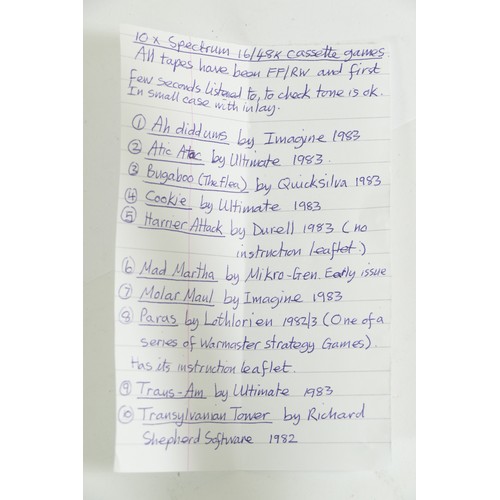 10 x Spectrum 16/48k cassette games
All tapes have been FF/RW and first
few seconds listened to, to check tone is ok.
In small case with inlay.
① Ah diddums by Imagine 1983
② Atic Atac by Ultimate 1983.
③ Bugaboo (The flea) by Quicksilva 1983
④ Cookie by Ultimate 1983
⑤ Harrier Attack by Durell 1983 (no
instruction leaflet.)
⑥ Mad Martha by Mikro-Gen. Early issue
⑦ Molar Maul by Imagine 1983
⑧ Paras by Lothlorien 1982/3 (One of a
series of Warmaster strategy Games).
Has its instruction leaflet.
⑨ Trans-Am by Ultimate 1983
⑩ Transylvanian Tower by Richard
Shepherd Software 1982